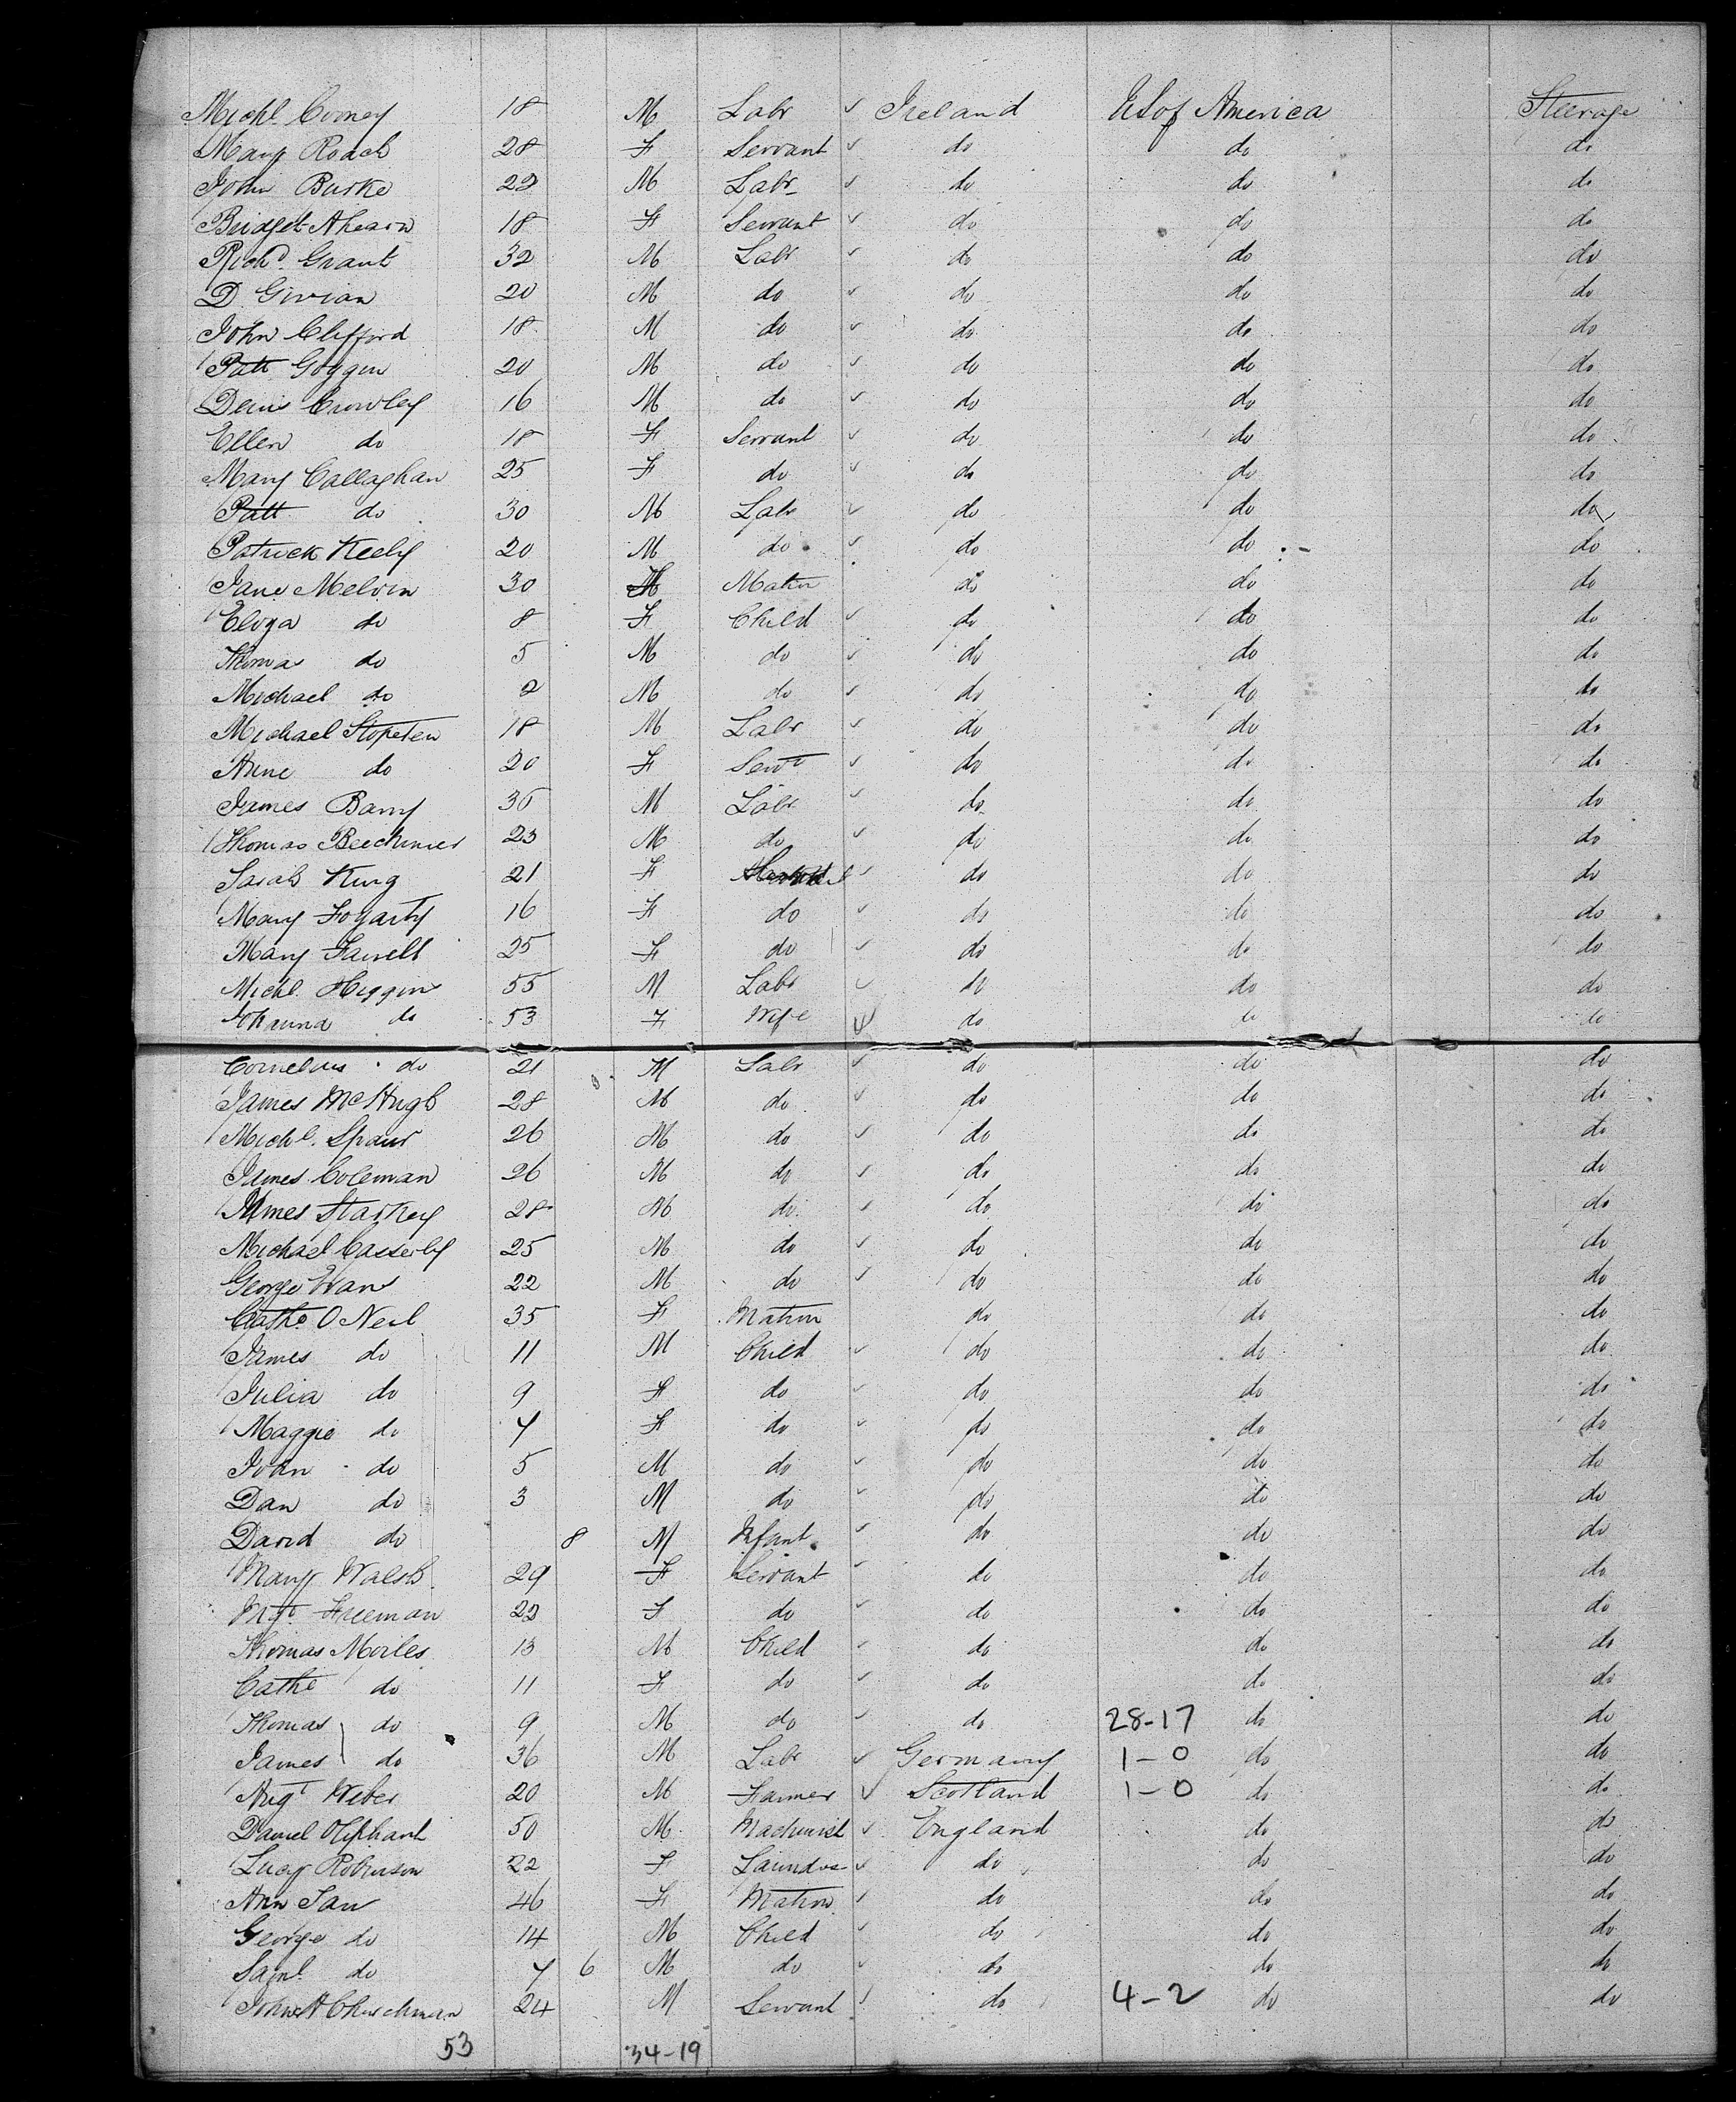 Michl. Corney 18 M Labr ✓ Ireland US of America Steerage
Mary Roach 28 F Servant ✓ do do do
John Burke 22 M Labr ✓ do do do
Bridget Ahearn 18 F Servant ✓ do do do
Richd. Grant 32 M Labr ✓ do do do
D. Givian 20 M do ✓ do do do
John Clifford 18 M do ✓ do do do
Patt Goggin 20 M do ✓ do do do
Denis Crowley 16 M do ✓ do do do
Ellen do 18 F Servant ✓ do do do
Mary Callaghan 25 F do ✓ do do do
Patt do 30 M Labr ✓ do do do
Patrick Keely 20 M do ✓ do do do
Jane Melvin 30 Matrn do do do
Eliza do 8 F Child ✓ do do do
Thomas do 5 M do ✓ do do do
Michael do 2 M do ✓ do do do
Michael 18 M Labr ✓ do do do
Anne do 20 F Servt ✓ do do do
James Barry 36 M Labr ✓ do do do
Thomas 23 M do ✓ do do do
Sarah King 21 F ✓ do do do
Mary Fogarty 16 F do ✓ do do do
Mary Farrell 25 F do ✓ do do do
Michl. Higgins 55 M Labr ✓ do do do
Johanna do 53 F Wife do do do
Cornelius do 21 M Labr ✓ do do do
James McHugh 28 M do ✓ do do do
Michl. 26 M do ✓ do do do
James Coleman 26 M do ✓ do do do
James Starkey 28 M do ✓ do do do
Michael Casserly 25 M do ✓ do do do
George 22 M do ✓ do do do
Cathe O Neil 35 F Matron do do do
James do 11 M Child ✓ do do do
Julia do 9 F do ✓ do do do
Maggie do 7 F do ✓ do do do
John do 5 M do ✓ do do do
Dan do 3 M do ✓ do do do
David do 8 M Infant ✓ do do do
Mary Walsh 29 F Servant ✓ do do do
Mgt Freeman 22 F do ✓ do do do
Thomas Moiles 13 M Child ✓ do do do
Cathe do 11 F do ✓ do do do
Thomas do 9 M do ✓ do 28-17 do do
James do 36 M Labr ✓ Germany 1-0 do do
Augt Weber 20 M Farmer ✓ Scotland 1-0 do do
Daniel Oliphant 50 M Machinist ✓ England do do
Lucy Robinson 22 F Laundrs ✓ do do do
Ann 46 F Matron ✓ do do do
George do 14 M Child ✓ do do do
Saml. do 7 6 M do ✓ do do do
John A Churchman 24 M Servant do 4-2 do do
53 34-19